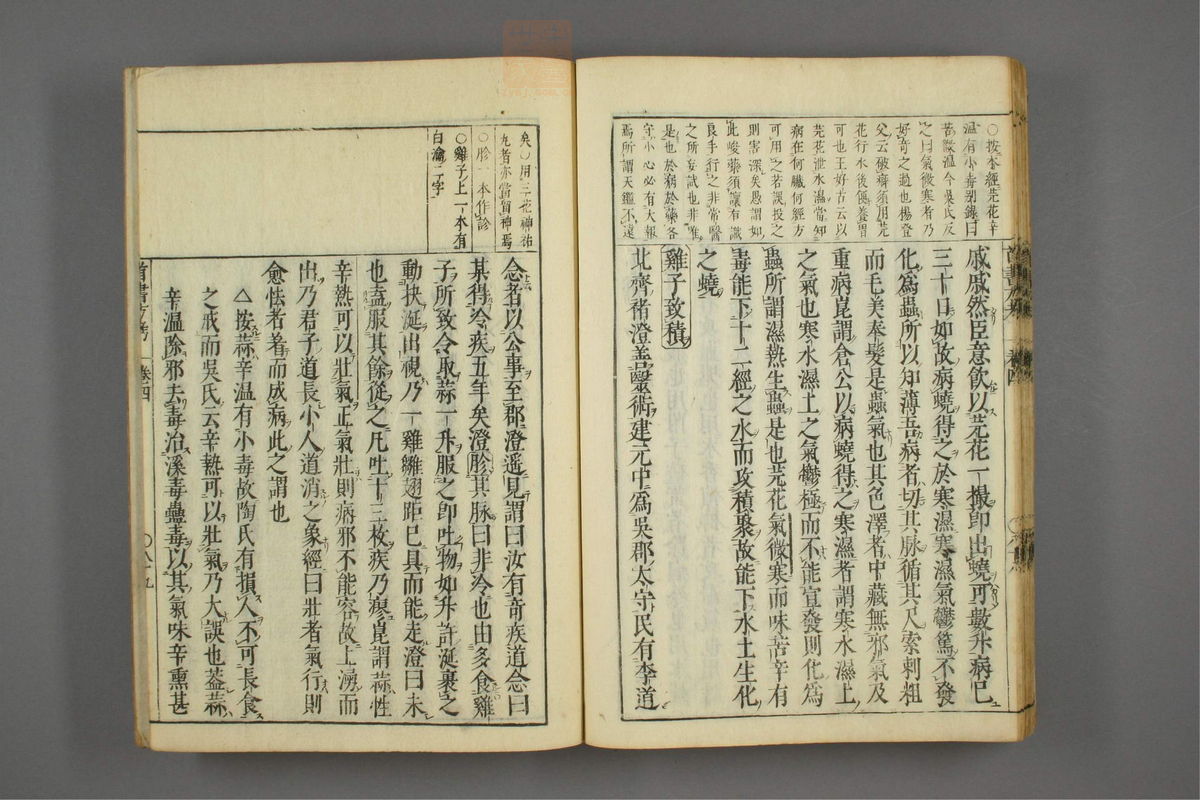 ○按本經芫花辛
温有小毒别錄曰
苦微温今吳氏反
之曰氣微寒者乃
好奇之過也楊登
父云破癖須用芫
花行水後便養胃
可也王好古云以
芫花泄水濕當知
病在何臓何經方
可用之若誤投之
則害深矣愚謂如
此峻藥須讓有識
良手行之非常醫
之所妄試也非唯
是也於病於藥各
守小心必有大報
焉所謂天鑑不遠
戚戚然臣意飲以芫花一撮即出蟯可數升病已
三十日如故病蟯得之於寒濕寒濕氣鬱篤不發
化為蟲所以知薄吾病者切其脉循其尺索刺粗
而毛美奉髮是蟲氣也其色澤者中藏無邪氣及
重病崑謂倉公以病蟯得之寒濕者謂寒水濕土
之氣也寒水濕土之氣鬱極而不能宣發則化為
蟲所謂濕熱生蟲是也芫花氣微寒而味苦辛有
毒能下十二經之水而攻積聚故能下水土生化
之蟯
雞子致積
北齊褚澄善醫術建元中為吳郡太守民有李道
矣○用三花神祐
丸者亦當留神焉
○胗一本作診
○雞子上一本有
白瀹二字
念者以公事至郡澄遥見謂曰汝有奇疾道念曰
某得冷疾五年矣澄胗其脉曰非冷也由多食雞
子所致令取蒜一升服之即吐物如升許涎裹之
動抉涎出視乃一雞雛翅距已具而能走澄曰未
也盍服其餘從之凡吐十三枚疾乃瘳崑謂蒜性
辛熱可以壯氣正氣壯則病邪不能容故上湧而
出乃君子道長小人道消之象經曰壯者氣行則
愈怯者着而成病此之謂也
△按蒜辛温有小毒故陶氏有損人不可長食
之戒而吳氏云辛熱可以壯氣乃大誤也葢蒜
辛温除邪去毒治溪毒蠱毒以其氣味辛熏甚
首書方考 卷四